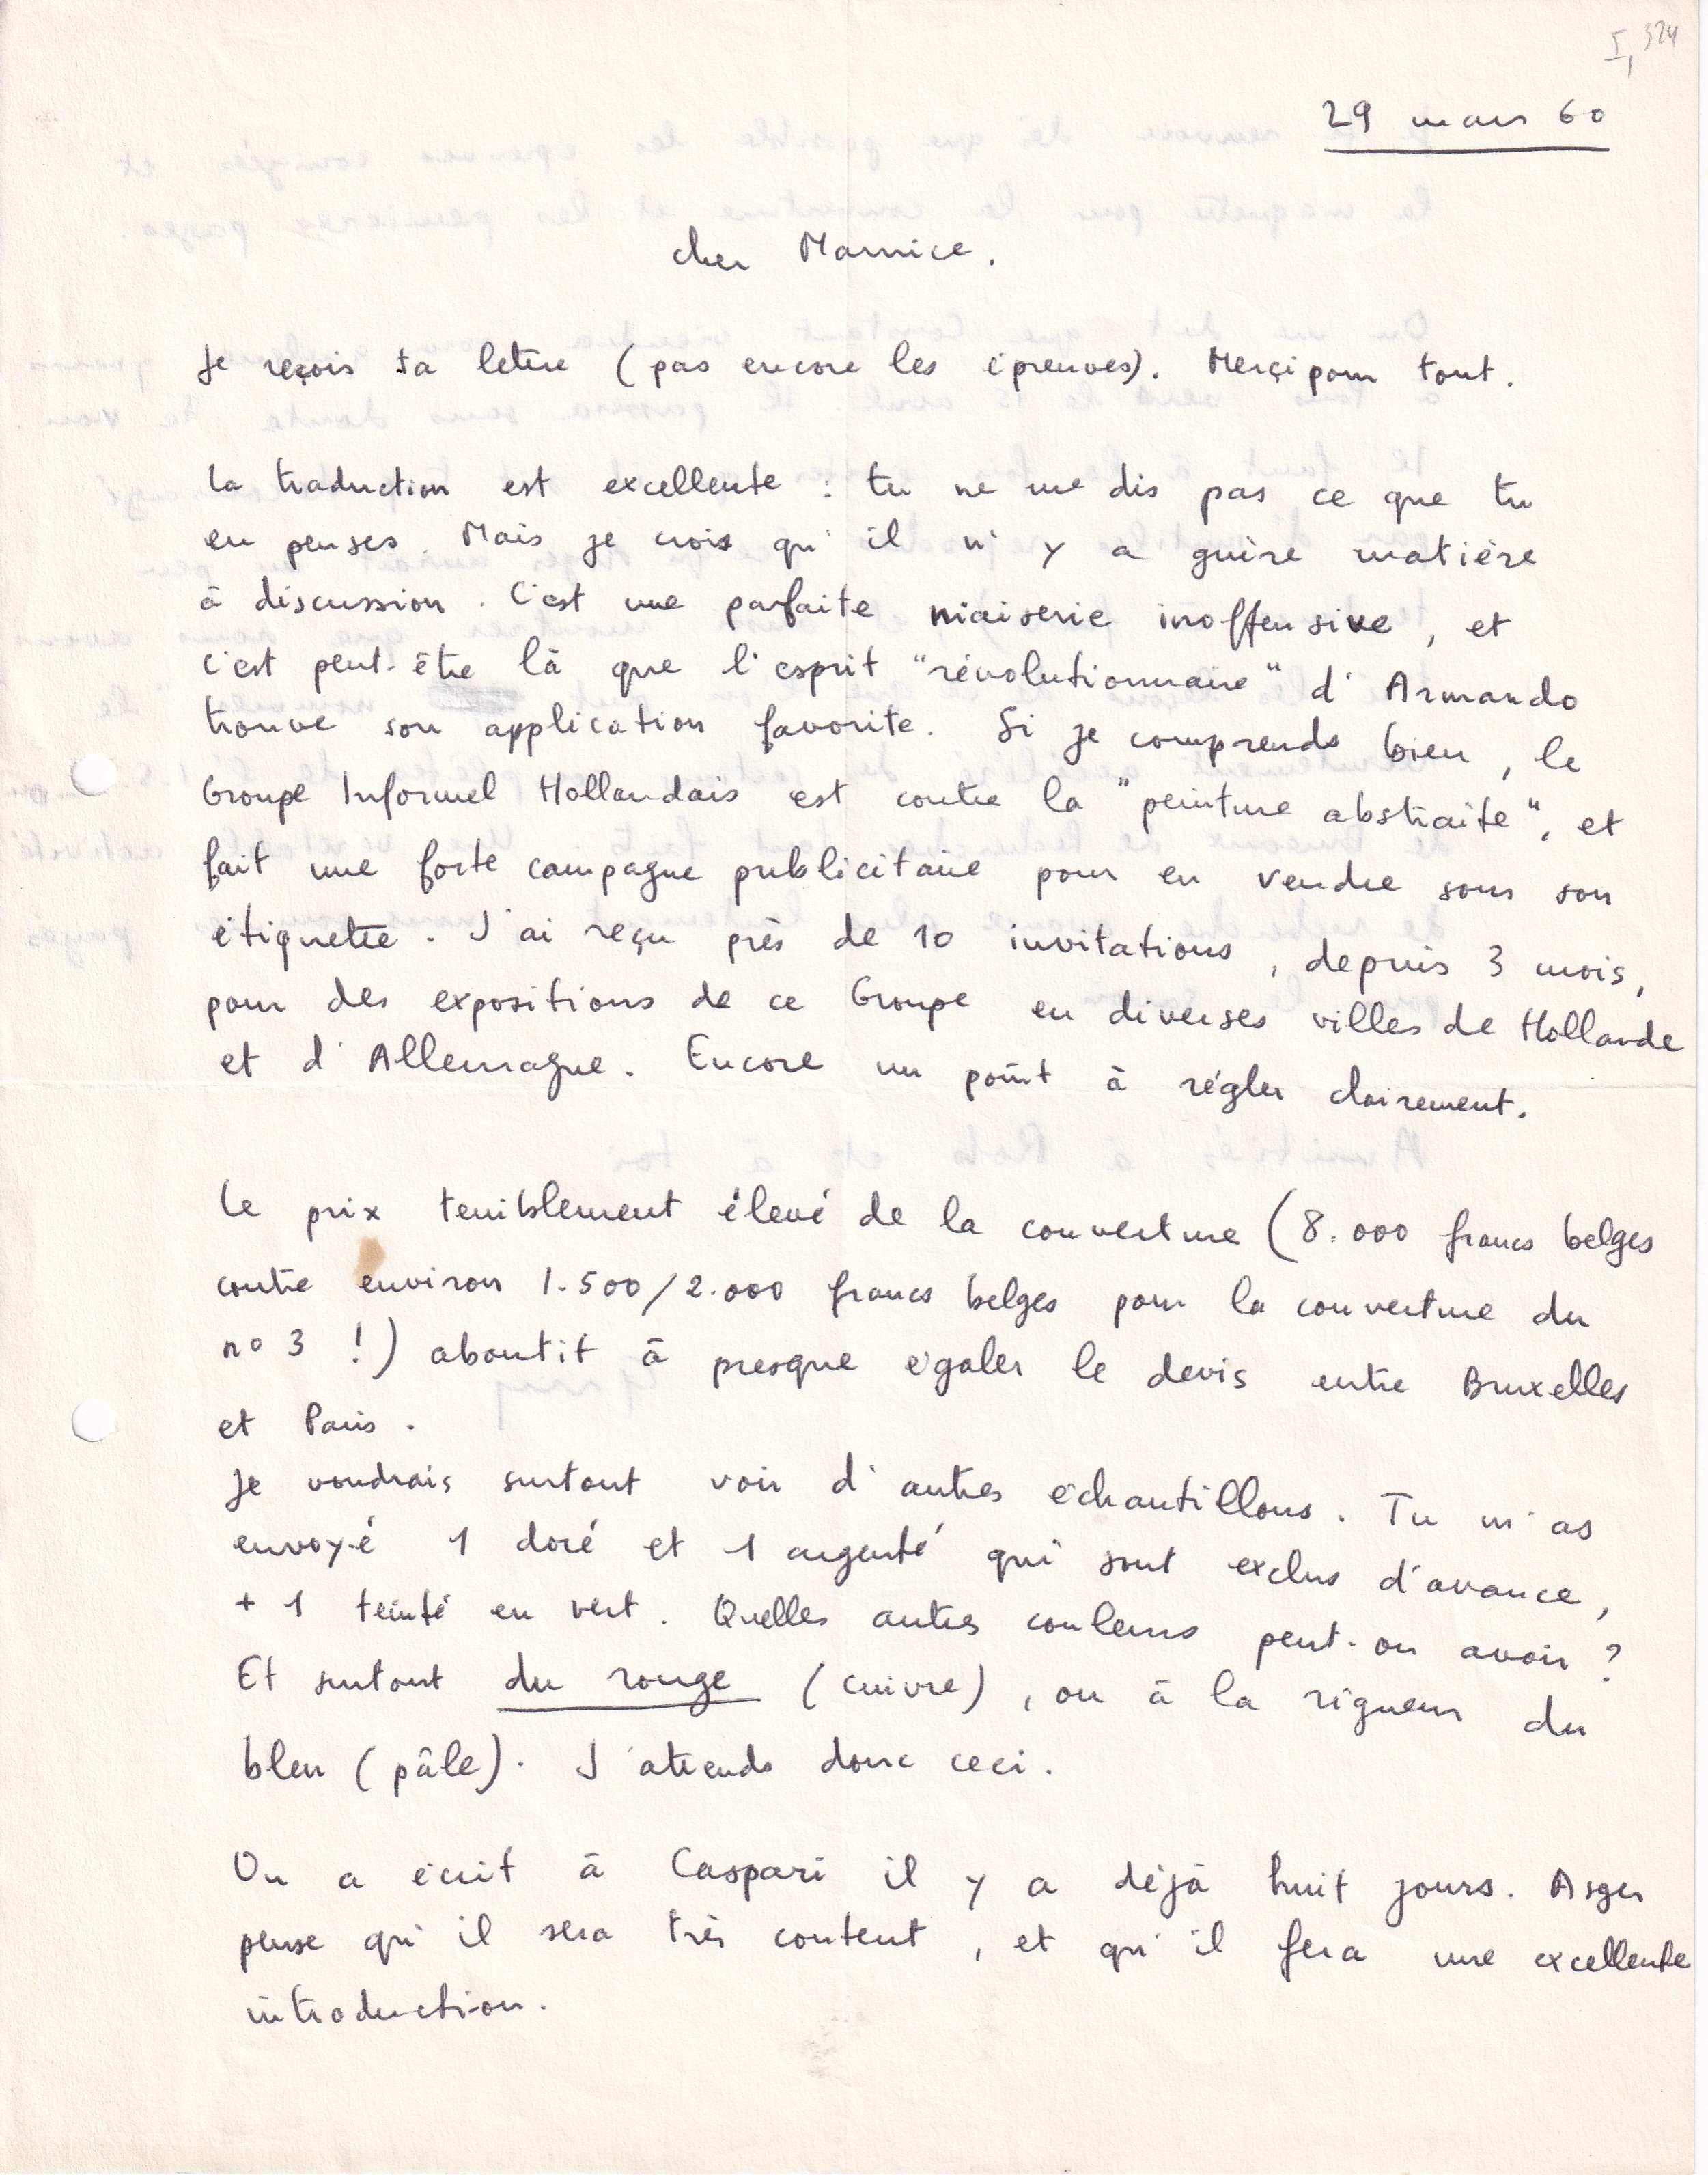 I, 324
29 mars 60
cher Maurice.
Je reçois ta lettre (pas encore les épreuves). Merçi pour tout.
La traduction est excellente : tu ne me dis pas ce que tu
en penses. Mais je crois qu'il n'y a guère matière
à discussion. C'est une parfaite niaiserie inoffensive, et
c'est peut-être là que l'esprit "révolutionnaire" d'Armando
trouve son application favorite. Si je comprends bien, le
Groupe Informel Hollandais est contre la "peinture abstraite", et
fait une forte campagne publicitaire pour en vendre sous son
étiquette. J'ai reçu près de 10 invitations, depuis 3 mois,
pour des expositions de ce Groupe en diverses villes de Hollande
et d'Allemagne. Encore un point à régler clairement.
Le prix terriblement élevé de la couverture (8.000 francs belges
contre environ 1.500/2.000 francs belges pour la couverture du
no 3 !) aboutit à presque égaler le devis entre Bruxelles
et Paris.
Je voudrais surtout voir d'autres échantillons. Tu m'as
envoyé 1 doré et 1 argenté qui sont exclus d'avance,
+ 1 teinté en vert. Quelles autres couleurs peut-on avoir ?
Et surtout du rouge (cuivre), ou à la rigueur du
bleu (pâle). J'attends donc ceci.
On a écrit à Caspari il y a déjà huit jours. Asger
pense qu'il sera très content, et qu'il fera une excellente
introduction.